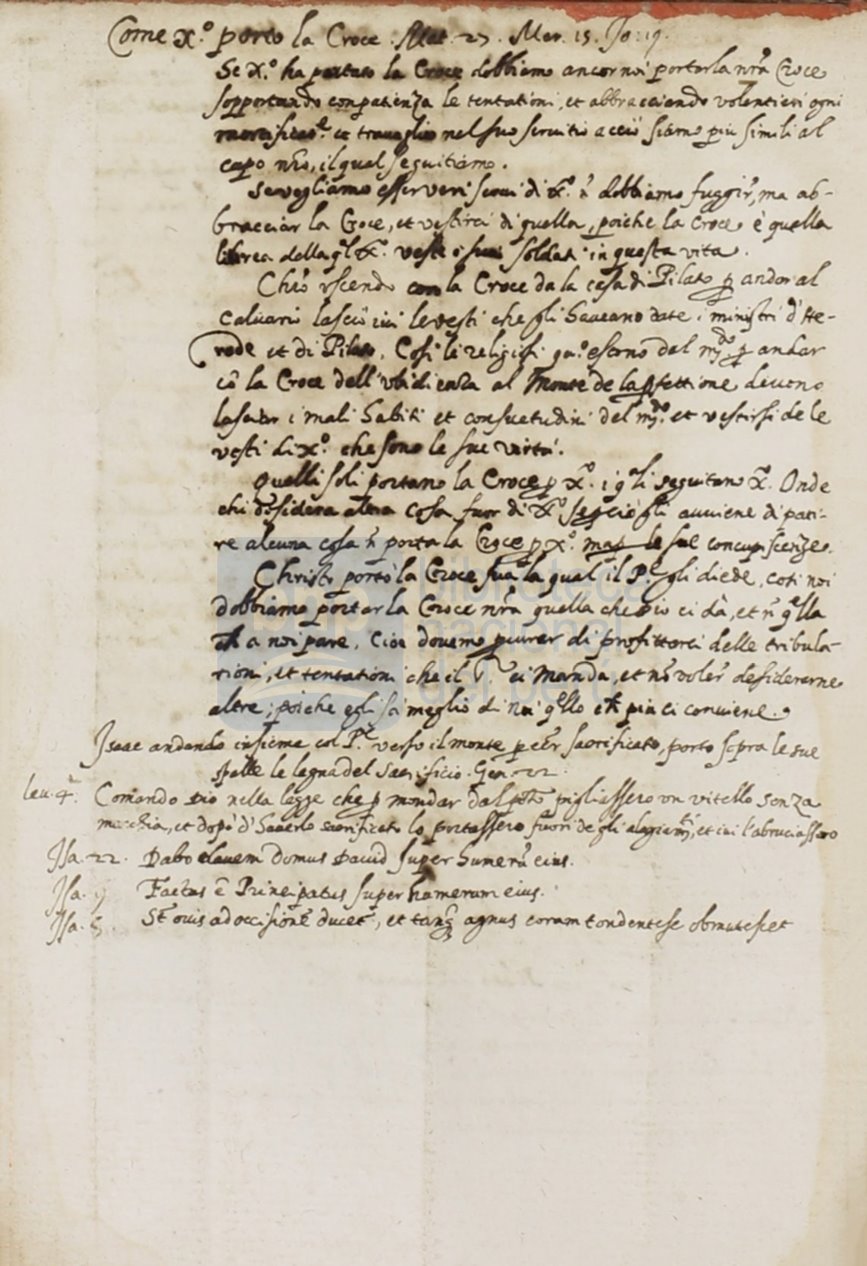 Come X.º porto la Croce. Mat. 27. Mar. 15. Jo: 19.
Se X.º ha portato la Croce dobbiamo ancor noi portar la nr̃a Croce
sopportando con patienza le tentationi, et abbracciando volentieri ogni
mortificatẽ. et travaglio nel suo servitio acciò siamo piu simili al
capo nr̃o, il qual seguitiamo.
Se vogliamo esser veri servi di X.º ñ dobbiamo fuggir, ma ab-
bracciar la Croce, et vestirci di quella, poiche la Croce è quella
librea della q̃l X.º veste i suoi soldati in questa vita.
Chr̃o uscendo con la Croce da la casa di Pilato p andar al
Calvario lasciò ivi le vesti che gli haveano date i ministri d'He-
rode et di Pilato. Cosi li religiosi qñ. escono dal mº.do p andar
cõ la Croce dell'ubidienza al Monte de la pfettione devono
lasciar i mali habiti et consuetudini del mº.do et vestirsi de le
vesti di X.º che sono le sue virtù.
Quelli soli portano la Croce p X.º i q̃li seguitano X.º Onde
chi desidera alcuna cosa fuor di X.º se p ciò gli avviene di pati-
re alcuna cosa ñ porta la Croce p X.º ma p le sue concupiscenze.
Christo portò la Croce sua la qual il P.e gli diede, così noi
dobbiamo portar la Croce nr̃a quella che Dio ci dà, et ñ q̃lla
ch a noi pare. Cioè dovemo pcurar di profittarci delle tribula-
tioni, et tentationi che il S.r ci manda, et nõ voler desiderarne
altre; poiche egli sa meglio di noi q̃llo ch̃ piu ci conviene.
Isaac andando insieme col P.e verso il monte p esser sacrificato, porto sopra le sue
spalle le legna del sacrificio. Gen. 22.
Leu. 4. Comando Dio nella legge che p mondar dal pctõ pigliassero un vitello senza
macchia, et dopò d'haverlo sacrificato lo portassero fuori de gli alogiam.ti, et ivi l'abruciassero
Isa. 22. Dabo clavem domus David super humerũ eius.
Isa. 9 Factus ẽ Principatus super humerum eius.
Isa. 5. Sĩ ovis ad occisionẽ ducet, et tanq̃ agnus coram tondente se obmutescet